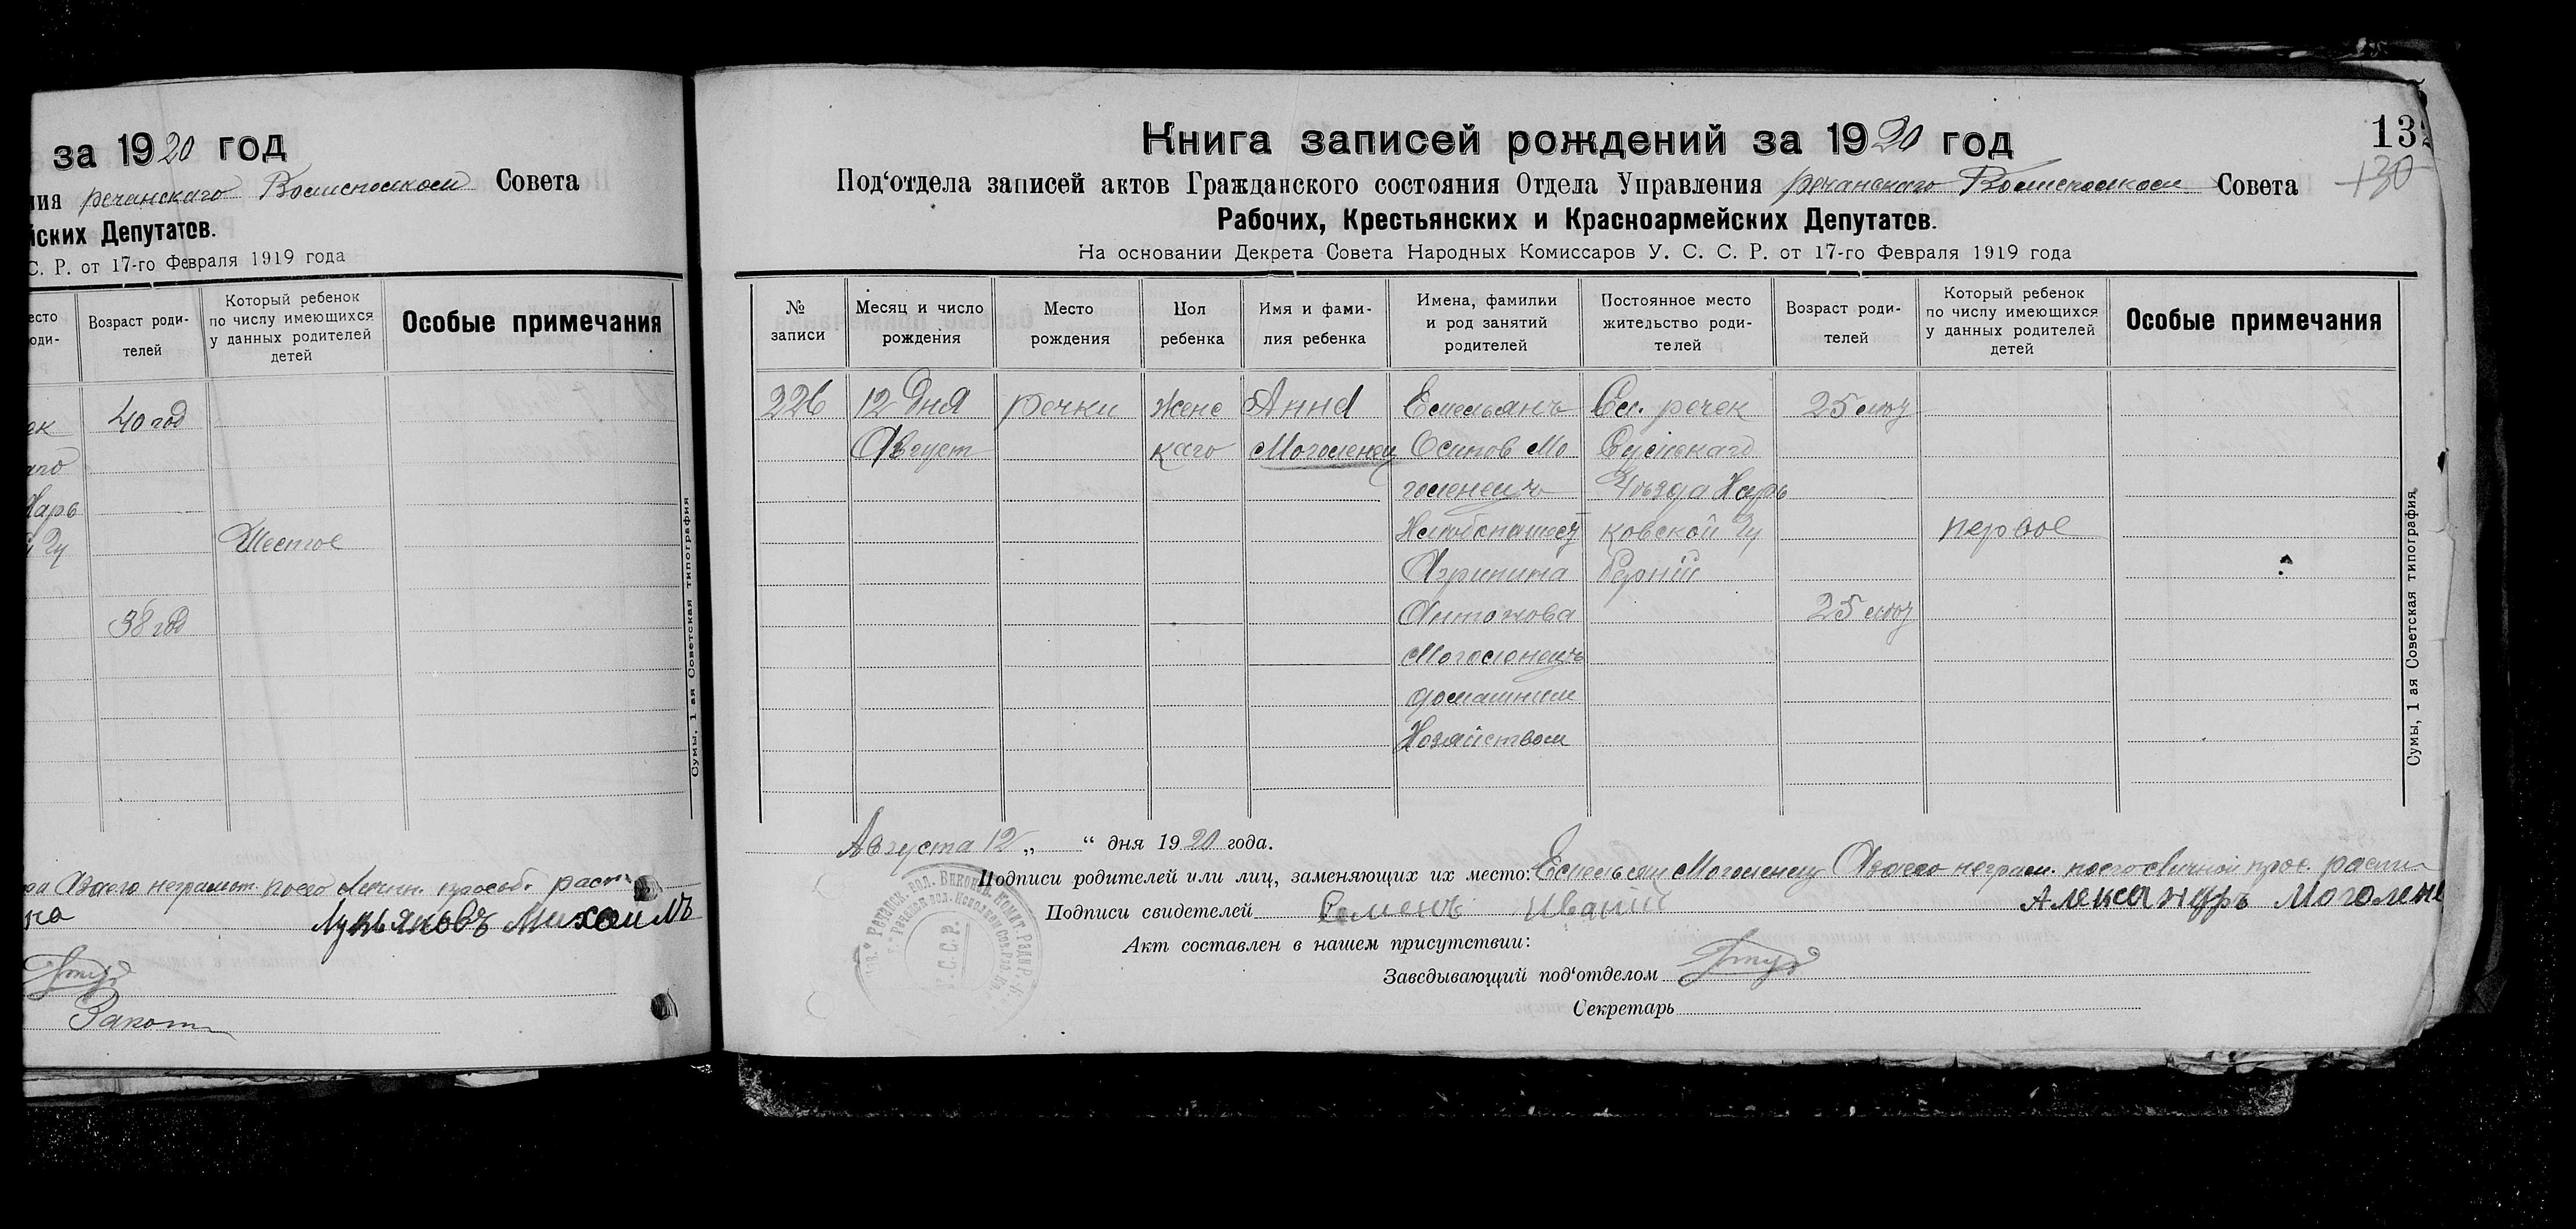 за 1920 год
ния речанскаго Волисполком Совета
йских Депутатов.
С. Р. от 17-го Февраля 1919 года
Возраст роди-
телей
Который ребенок
по числу имеющихся
у данных родителей
детей
Особые примечания
40 год
Шестое
38 год
Сумы, 1 ая Советская типография
неграмот. расп
Лукьяновъ Михаилъ
Книга записей рождений за 1920 год
13
130
Под‘отдела записей актов Гражданского состояния Отдела Управления речанскаго Волисполком Совета
Рабочих, Крестьянских и Красноармейских Депутатов.
На основании Декрета Совета Народных Комиссаров У. С. С. Р. от 17-го Февраля 1919 года
№
записи
Месяц и число
рождения
Место
рождения
Пол
ребенка
Имя и фами-
лия ребенка
Имена, фамилии
и род занятий
родителей
Постоянное место
жительство роди-
телей
Возраст роди-
телей
Который ребенок
по числу имеющихся
у данных родителей
детей
Особые примечания
226
12 дня
Август
речки
женс
каго
Анна
Моголенец
Емельянъ
Осипов Мо
голенецъ
Хлебопашец
Агрипина
Антонова
Моголенецъ
домашним
Хозяйством
Сл. речек
Сумскаго
Уезда Харь
ковской Гу
бернии
25 лет
25 лет
первое
Сумы, 1 ая Советская типография
Августа 12 „ “ дня 1920 года.
Подписи родителей или лиц, заменяющих их место: Емельян Моголенец неграм. личной прос. распи
Подписи свидетелей Семенъ Иваний Александръ Моголене
Акт составлен в нашем присутствии:
Заведывающий под‘отделом
Секретарь